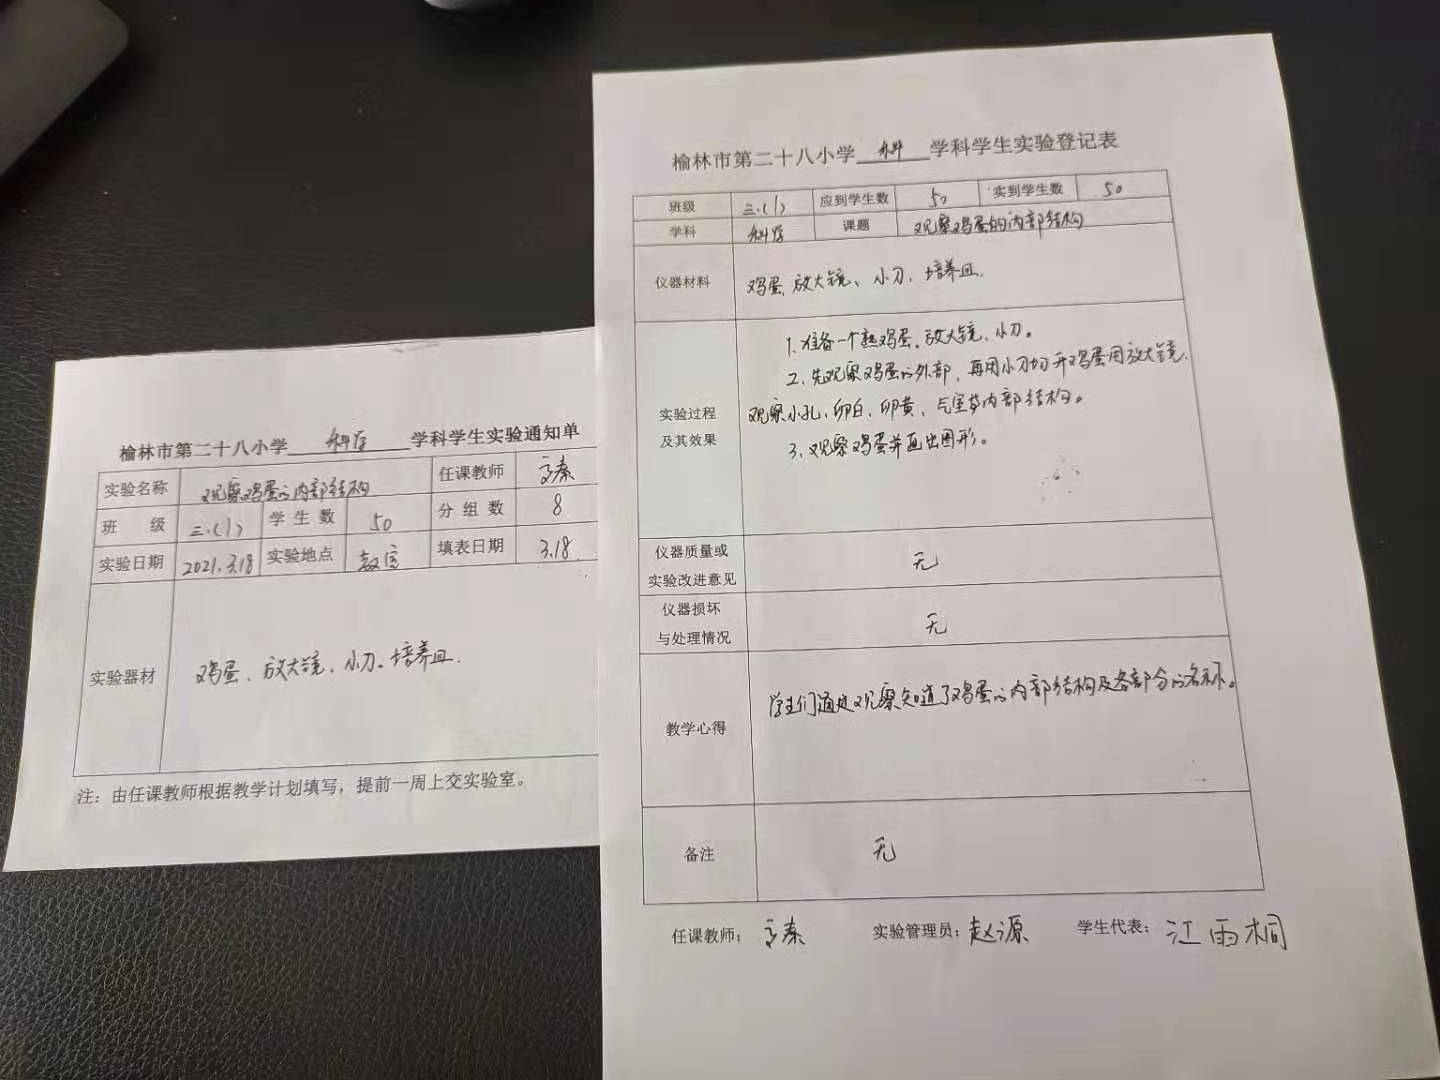 榆林市第二十八小学 科学 学科学生实验通知单
实验名称 观察鸡蛋的内部结构 任课教师
班 级 三.(1) 学生数 50 分组数 8
实验日期 2021.3.18 实验地点 教室 填表日期 3.18
实验器材 鸡蛋、放大镜、小刀、培养皿.
注：由任课教师根据教学计划填写，提前一周上交实验室。
榆林市第二十八小学 科 学科学生实验登记表
班级 三.(1) 应到学生数 50 实到学生数 50
学科 科学 课题 观察鸡蛋的内部结构
仪器材料 鸡蛋、放大镜、小刀、培养皿.
实验过程
及其效果
1、准备一个熟鸡蛋、放大镜、小刀。
2、先观察鸡蛋的外部，再用小刀切开鸡蛋用放大镜.
观察小孔、卵白、卵黄、气室等内部结构。
3、观察鸡蛋并画出图形。
仪器质量或
实验改进意见 无
仪器损坏
与处理情况 无
教学心得 学生们通过观察知道了鸡蛋的内部结构及各部分的名称。
备注 无
任课教师： 实验管理员：赵源 学生代表：江雨桐